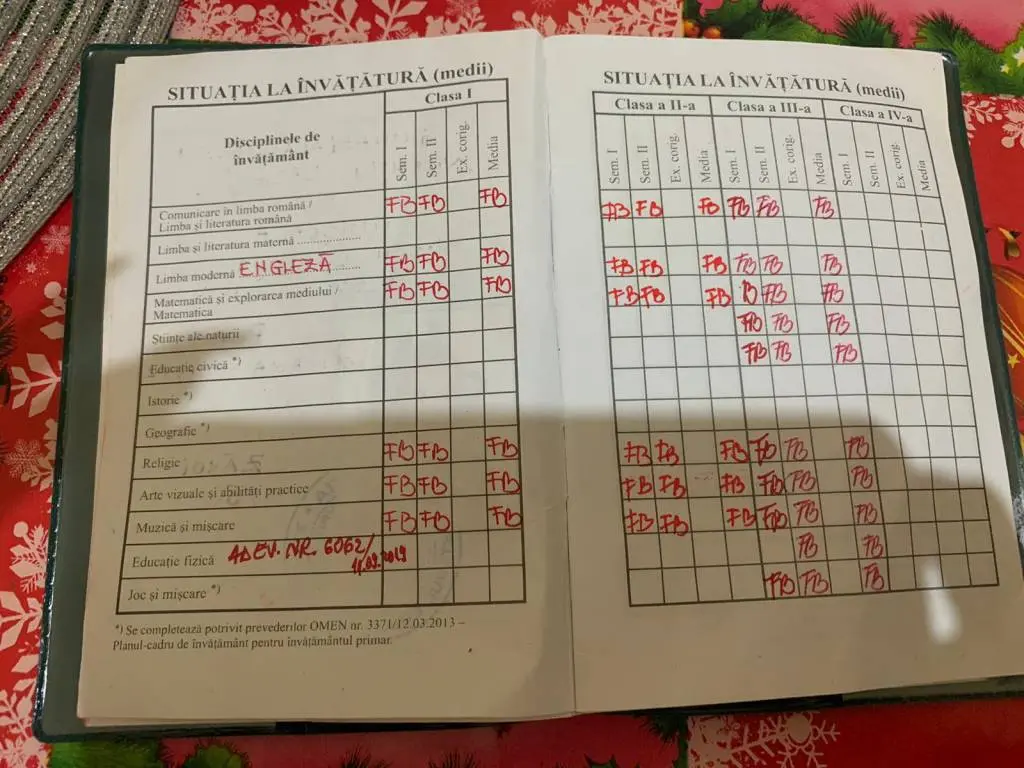 SITUAȚIA LA ÎNVĂȚĂTURĂ (medii)
Disciplinele de învățământ
Clasa I
Sem. I Sem. II Ex. corig. Media
Comunicare în limba română /
Limba și literatura română FB FB FB
Limba și literatura maternă ....................
Limba modernă ENGLEZĂ FB FB FB
Matematică și explorarea mediului /
Matematica FB FB FB
Științe ale naturii
Educație civică *)
Istorie *)
Geografie *)
Religie FB FB FB
Arte vizuale și abilități practice FB FB FB
Muzică și mișcare FB FB FB
Educație fizică ADEV. NR. 6062/
Joc și mișcare *)
*) Se completează potrivit prevederilor OMEN nr. 3371/12.03.2013 –
Planul-cadru de învățământ pentru învățământul primar.
SITUAȚIA LA ÎNVĂȚĂTURĂ (medii)
Clasa a II-a Clasa a III-a Clasa a IV-a
Sem. I Sem. II Ex. corig. Media Sem. I Sem. II Ex. corig. Media Sem. I Sem. II Ex. corig. Media
FB FB FB FB FB FB
FB FB FB FB FB FB
FB FB FB B FB FB
FB FB FB
FB FB FB
FB FB FB FB FB FB
FB FB FB FB FB FB
FB FB FB FB FB FB
FB FB
FB FB FB